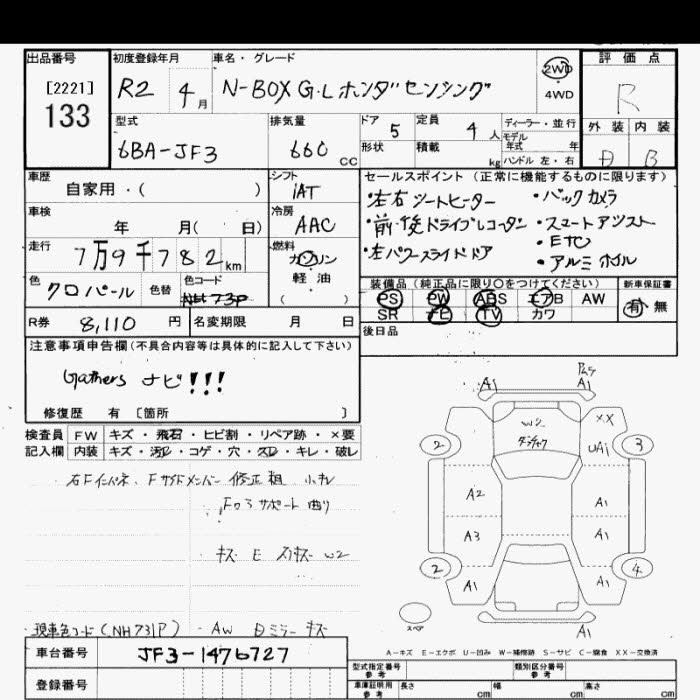 出品番号
[2221]
133
初度登録年月
R2 4月
車名・グレード
N-BOX G・Lホンダセンシング
2WD
4WD
評価点
R
外装 内装
B
型式
6BA-JF3
排気量
660 CC
ドア
5
定員
4人
形状
積載
kg
ディーラー・並行
モデル年式 年
ハンドル 左・右
車歴
自家用・( )
シフト
IAT
車検
年 月( 日)
冷房
AAC
走行
7万9千782km
燃料
ガソリン
軽油
( )
色
クロパール
色替
色コード
NH 731P
R券 8,110 円
名変期限 月 日
セールスポイント(正常に機能するものに限ります)
・左右シートヒーター ・バックカメラ
・前・後ドライブレコーダー ・スマートアシスト
・左パワースライドドア ・ETC
・アルミホイル
装備品(純正品に限り○をつけてください)
PS PW ABS エアB AW
SR ナビ TV カワ
新車保証書
有 無
後日品
注意事項申告欄(不具合内容等は具体的に記入して下さい)
Gathers ナビ!!!
修復歴 有 [箇所 ]
検査員記入欄
FW キズ・飛石・ヒビ割・リペア跡・×要
内装 キズ・汚レ・コゲ・穴・スレ・キレ・破レ
右Fインパネ、Fサイドメンバー 修正 粗 小キレ
Fロアサポート 曲り
・キズ E スリキズ W2
現車色コード(NH731P) ・AW ミラー キズ
A1 A1
W2
XX
UA1
2 3
A2 A1
A3 A1
2 4
A1 A1
A1
スペア
A-キズ E-エクボ U-凹み W-補修跡 S-サビ C-腐食 XX-交換済
車台番号
JF3-1476727
登録番号
型式指定番号
参考
類別区分番号
参考
車庫証明用
参考
長さ cm
幅 cm
高さ cm